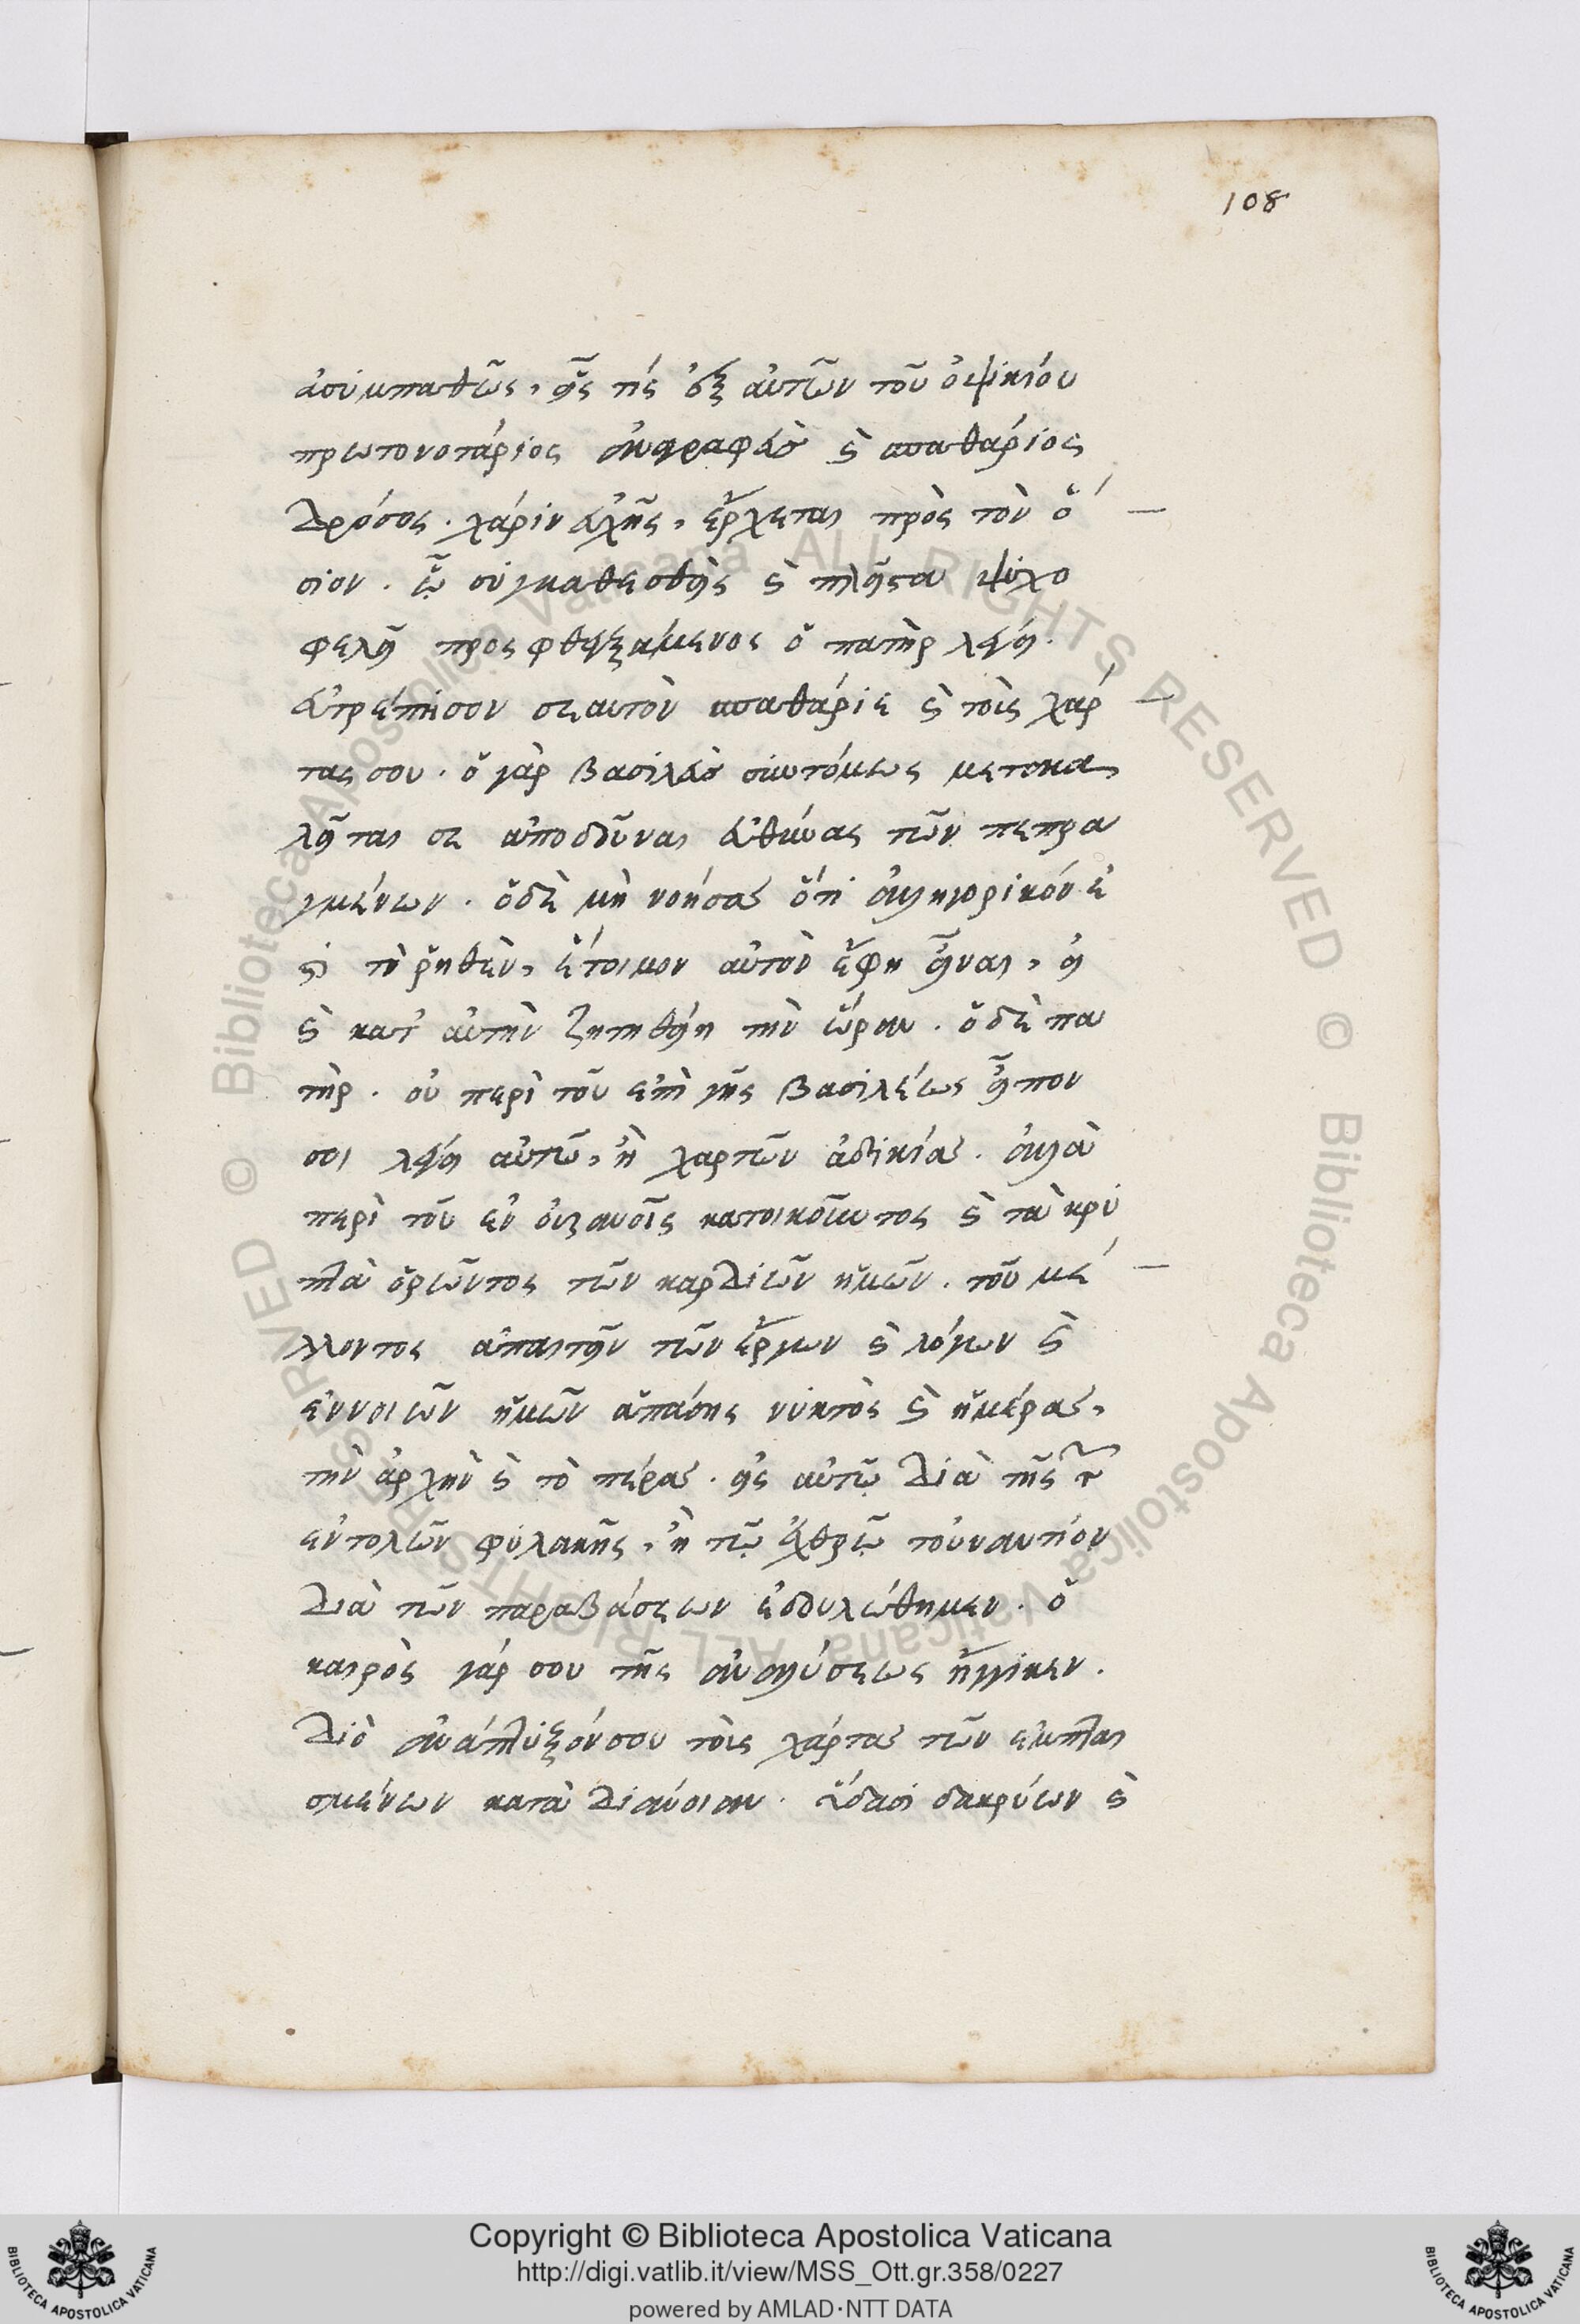 108
ἀσυμπαθῶς, εἷς τίς ἐξ αὐτῶν τοῦ ὀψικίου
πρωτονοτάριος ἀναγραφεὺς καὶ σπαθάριος
Δρόσος. χάριν εὐχῆς, ἔρχεται πρὸς τὸν ὅ
σιον. ᾧ συγκαθεσθεὶς καὶ πλεῖστα ψυχο
φελῆ προσφθεγξάμενος ὁ πατὴρ λέγει.
εὐτρέπισον σεαυτὸν σπαθάριε καὶ τοὺς χάρ
τας σου. ὁ γὰρ βασιλεὺς συντόμως μετακα
λεῖταί σε ἀποδοῦναι εὐθύνας τῶν πεπρα
γμένων. ὁ δὲ μὴ νοήσας ὅτι ἀλληγορικόν ἐ
στι τὸ ῥηθὲν, ἕτοιμον αὐτὸν ἔφη εἶναι, εἰ
καὶ κατ' αὐτὴν ζητηθείη τὴν ὥραν. ὁ δὲ πα
τὴρ. οὐ περὶ τοῦ ἐπὶ γῆς βασιλέως εἶπον
σοι λέγει αὐτῷ, ἢ χαρτῶν ἀδικίας. ἀλλὰ
περὶ τοῦ ἐν οὐρανοῖς κατοικοῦντος καὶ τὰ κρυ
πτὰ ὁρῶντος τῶν καρδιῶν ἡμῶν. τοῦ μέ
λλοντος ἀπαιτεῖν τῶν ἔργων καὶ λόγων καὶ
ἐννοιῶν ἡμῶν ἁπάσης νυκτὸς καὶ ἡμέρας,
τὴν ἀρχὴν καὶ τὸ πέρας. εἰς αὐτῷ διὰ τῆς τῶν
ἐντολῶν φυλακῆς, ἢ τῷ ἐχθρῷ τοὐναντίον
διὰ τῶν παραβάσεων ἐδουλώθημεν. ὁ
καιρὸς γάρ σου τῆς ἀναλύσεως ἤγγικεν.
διὸ ἀνάπτυξόν σου τοὺς χάρτας τῶν ἐμπται
σμένων κατὰ διάνοιαν. ὕδασι δακρύων καὶ
Copyright © Biblioteca Apostolica Vaticana
http://digi.vatlib.it/view/MSS_Ott.gr.358/0227
powered by AMLAD·NTT DATA